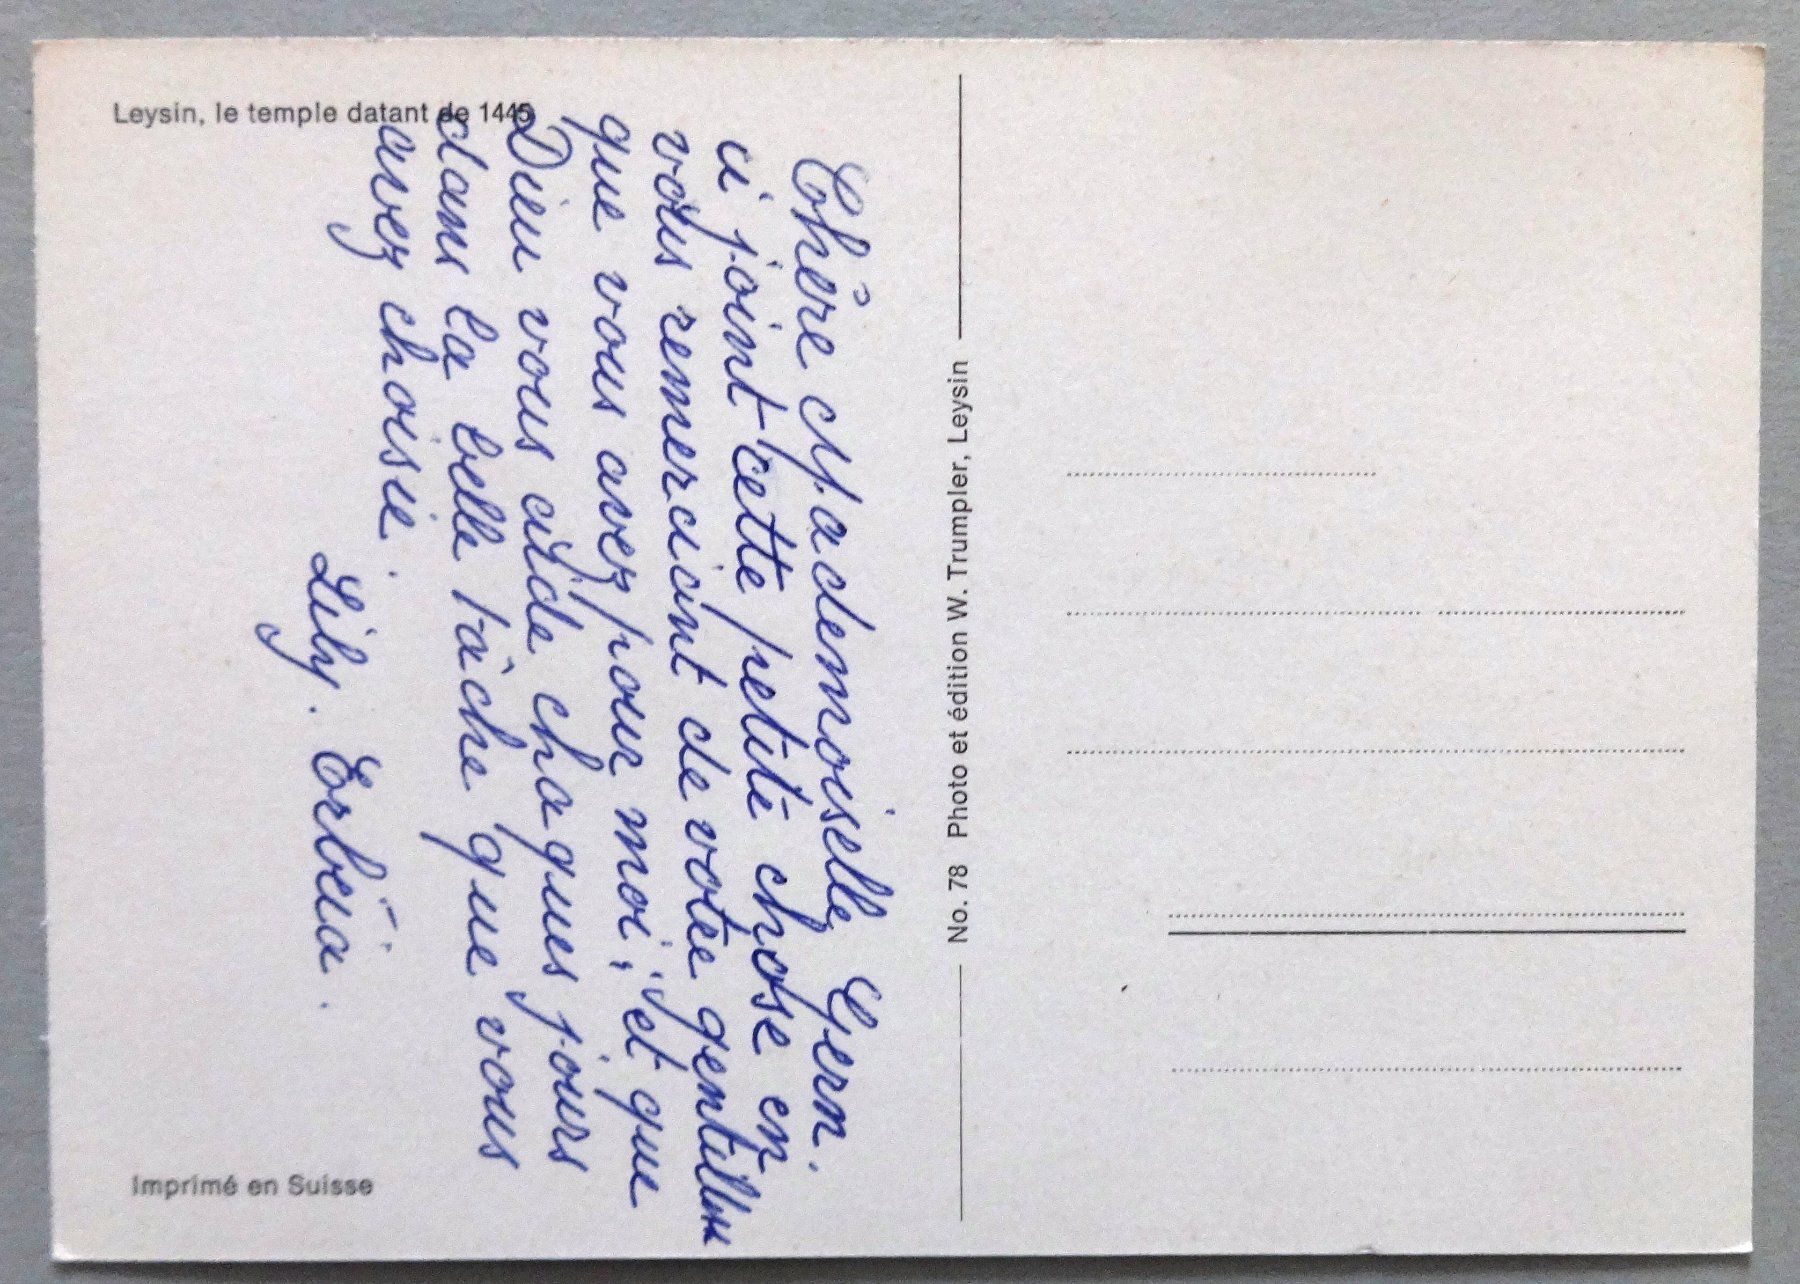 Leysin, le temple datant de 1445
Chère Mademoiselle Gern.
ci joint cette petite chose en
vous remerciant de votre gentilless
que vous avez pour moi, et que
Dieu vous aide chaques jours
dans la belle tâche que vous
avez choisie.
Lily.
No. 78 Photo et édition W. Trumpler, Leysin
Imprimé en Suisse